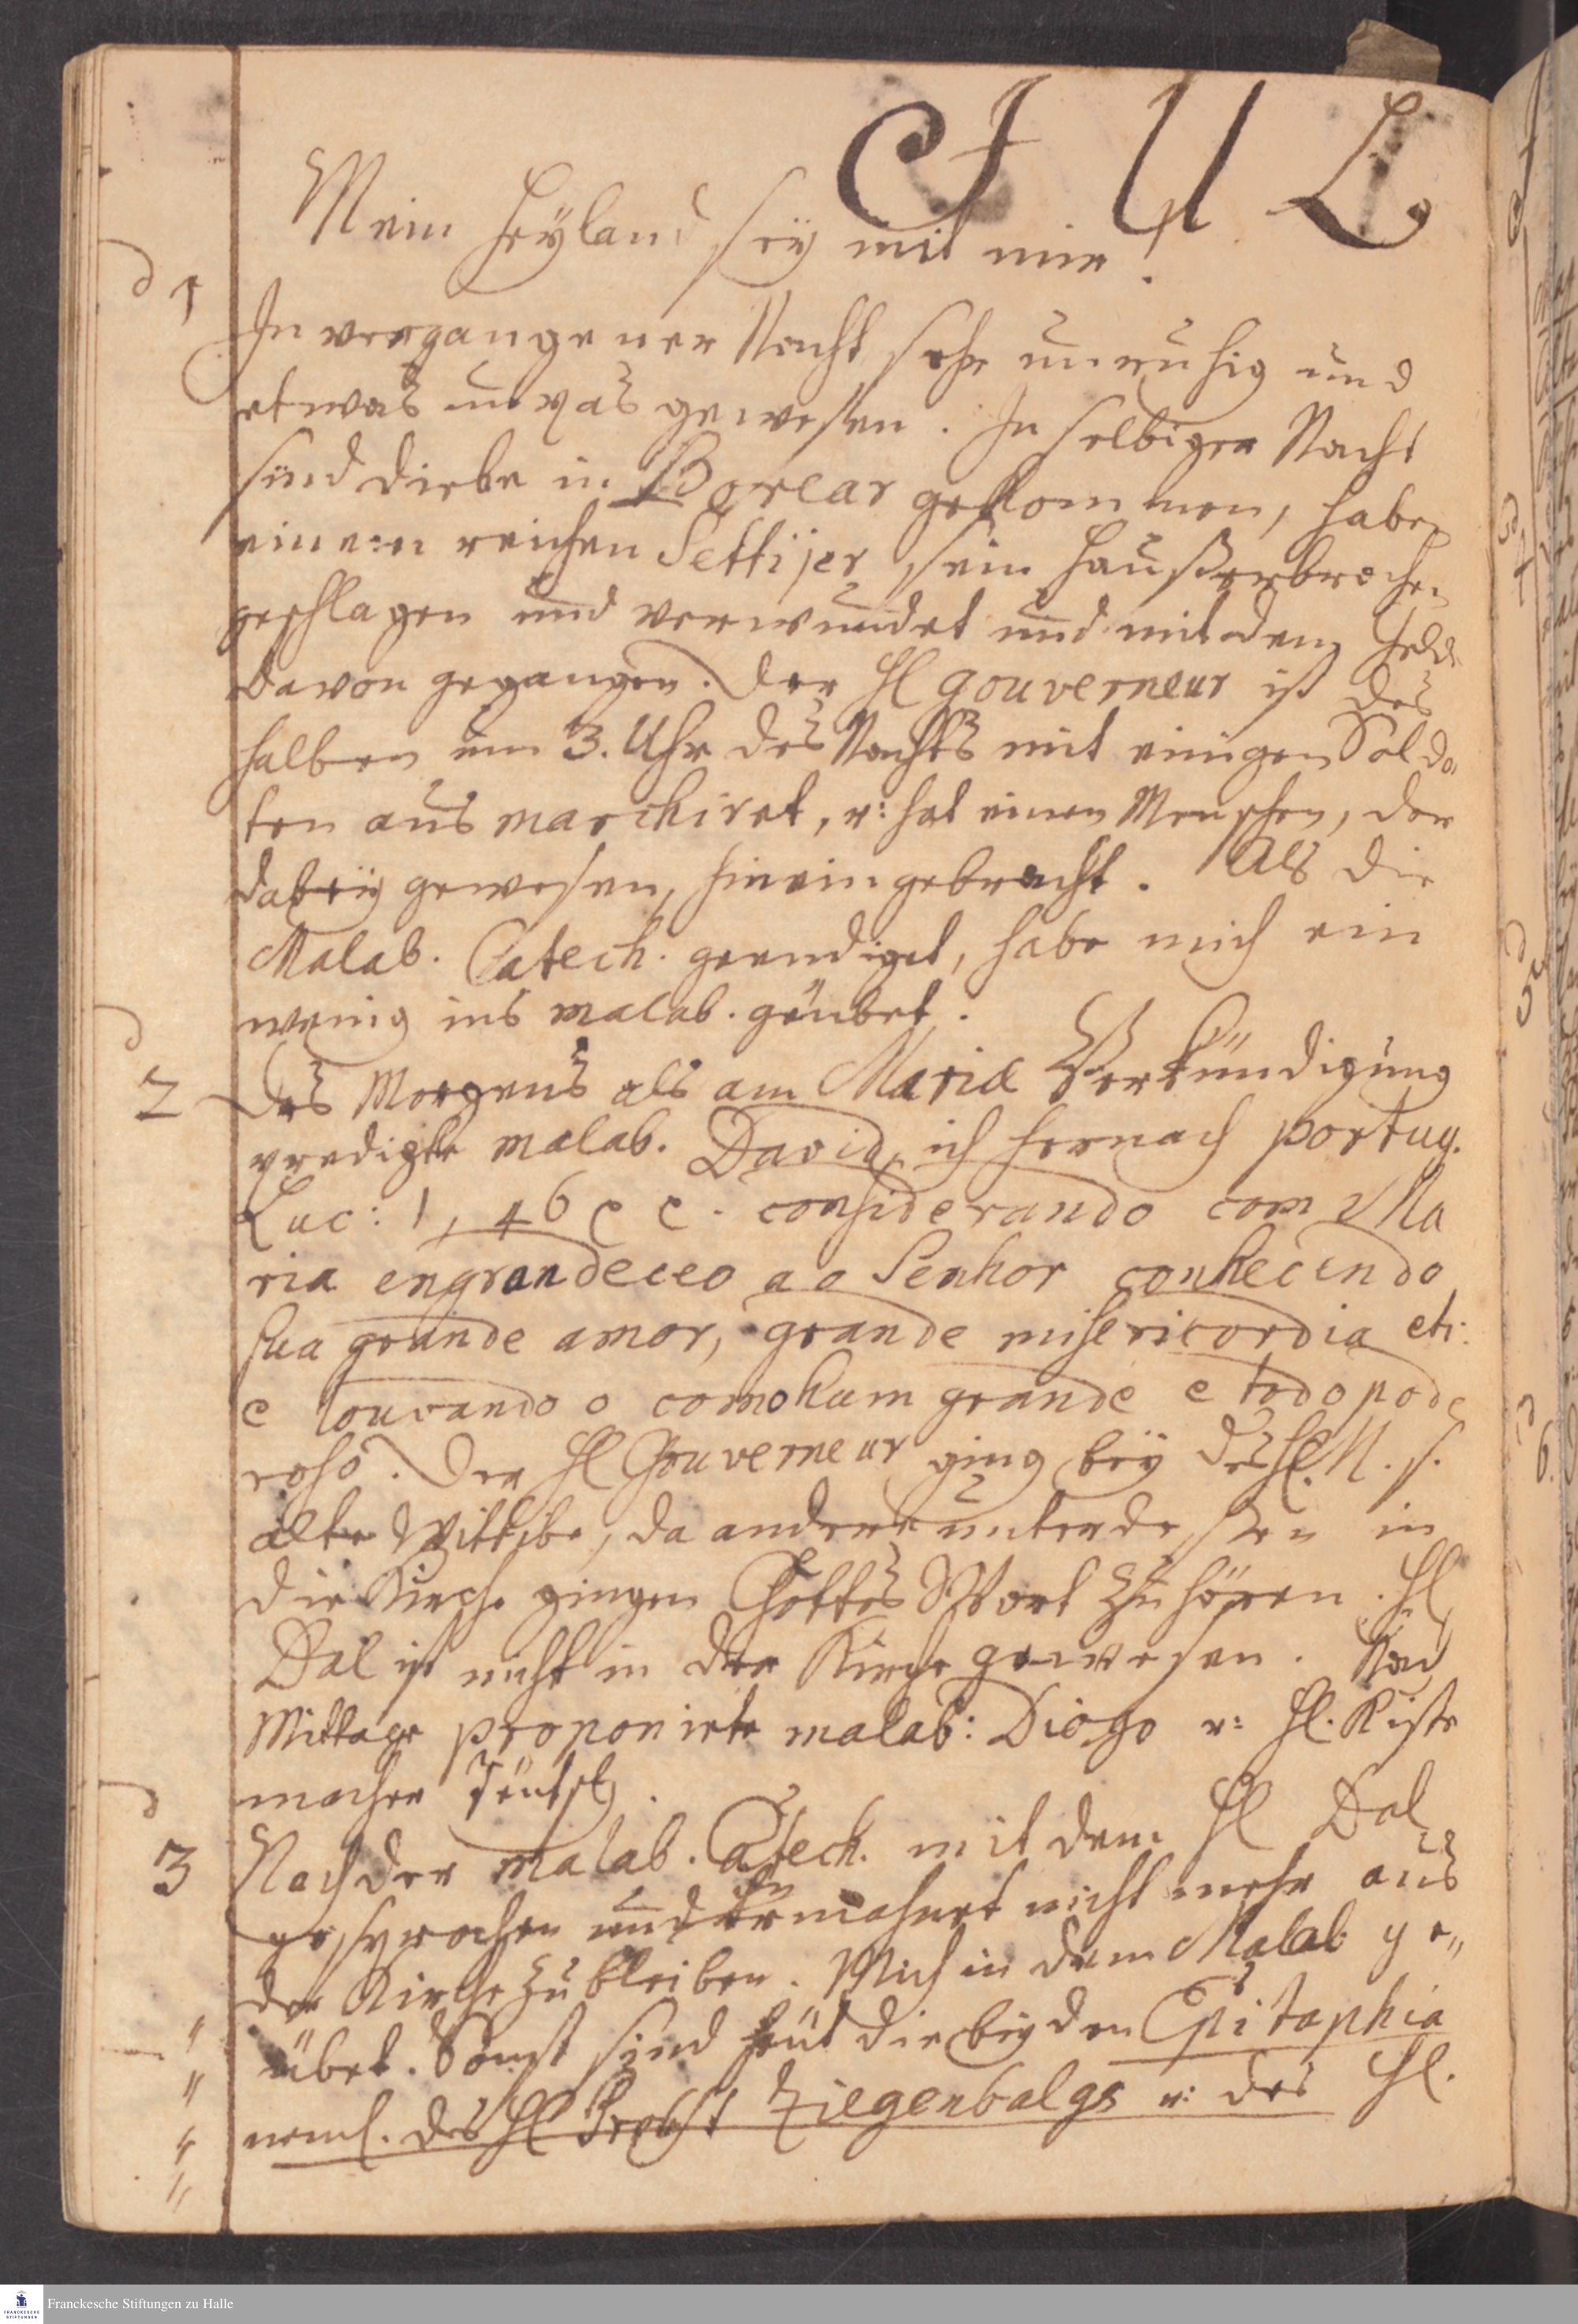 JUL
Mein Heÿland seÿ mit mir!
1 In vergangener Nacht sehr unruhig und
etwas unpas gewesen. In selbiger Nacht
sind Diebe in Borear gekommen, haben
einem reichen Settijer sein Hauß erbrochen
geschlagen und verwundet und mit dem Gelde
davon gegangen. Der Hl Gouverneur ist des
halben um 3. Uhr des Nachts mit einigen Solda
ten aus marchiret, u: hat einen Menschen, der
dabeÿ gewesen, hineingebracht. Als die
Malab. Catech. geendiget, habe mich ein
wenig ins malab. geübet.
2 Des Morgens als am Mariæ Verkündigung
predigte malab. David, ich hernach portug.
Luc: 1, 46 e c. considerando com Ma
ria engrandeceo a o Senhor conhecendo
sua grande amor, grande misericordia etc.
e louvando o como hum grande e todo pode
roso. Der Hl Gouverneur ging beÿ des Hl. N. s.
alte Wittibe, da andere unterdessen in
die Kirche gingen Gottes Wort zu hören. Hl
Dal ist nicht in der Kirche gewesen. Nach
Mittage proponirte malab: Diogo u: Hl. Kiste
macher Teutsch.
3 Nach der malab. Catech. mit dem Hl Dal
gesprochen und ihn ermahnet nicht mehr aus
der Kirche zu bleiben. Mich in dem Malab ge„
übet. Sonst sind heut die beyden Epitaphia
neml. des Hl Probst Ziegenbalgs u: des Hl.
Franckesche Stiftungen zu Halle